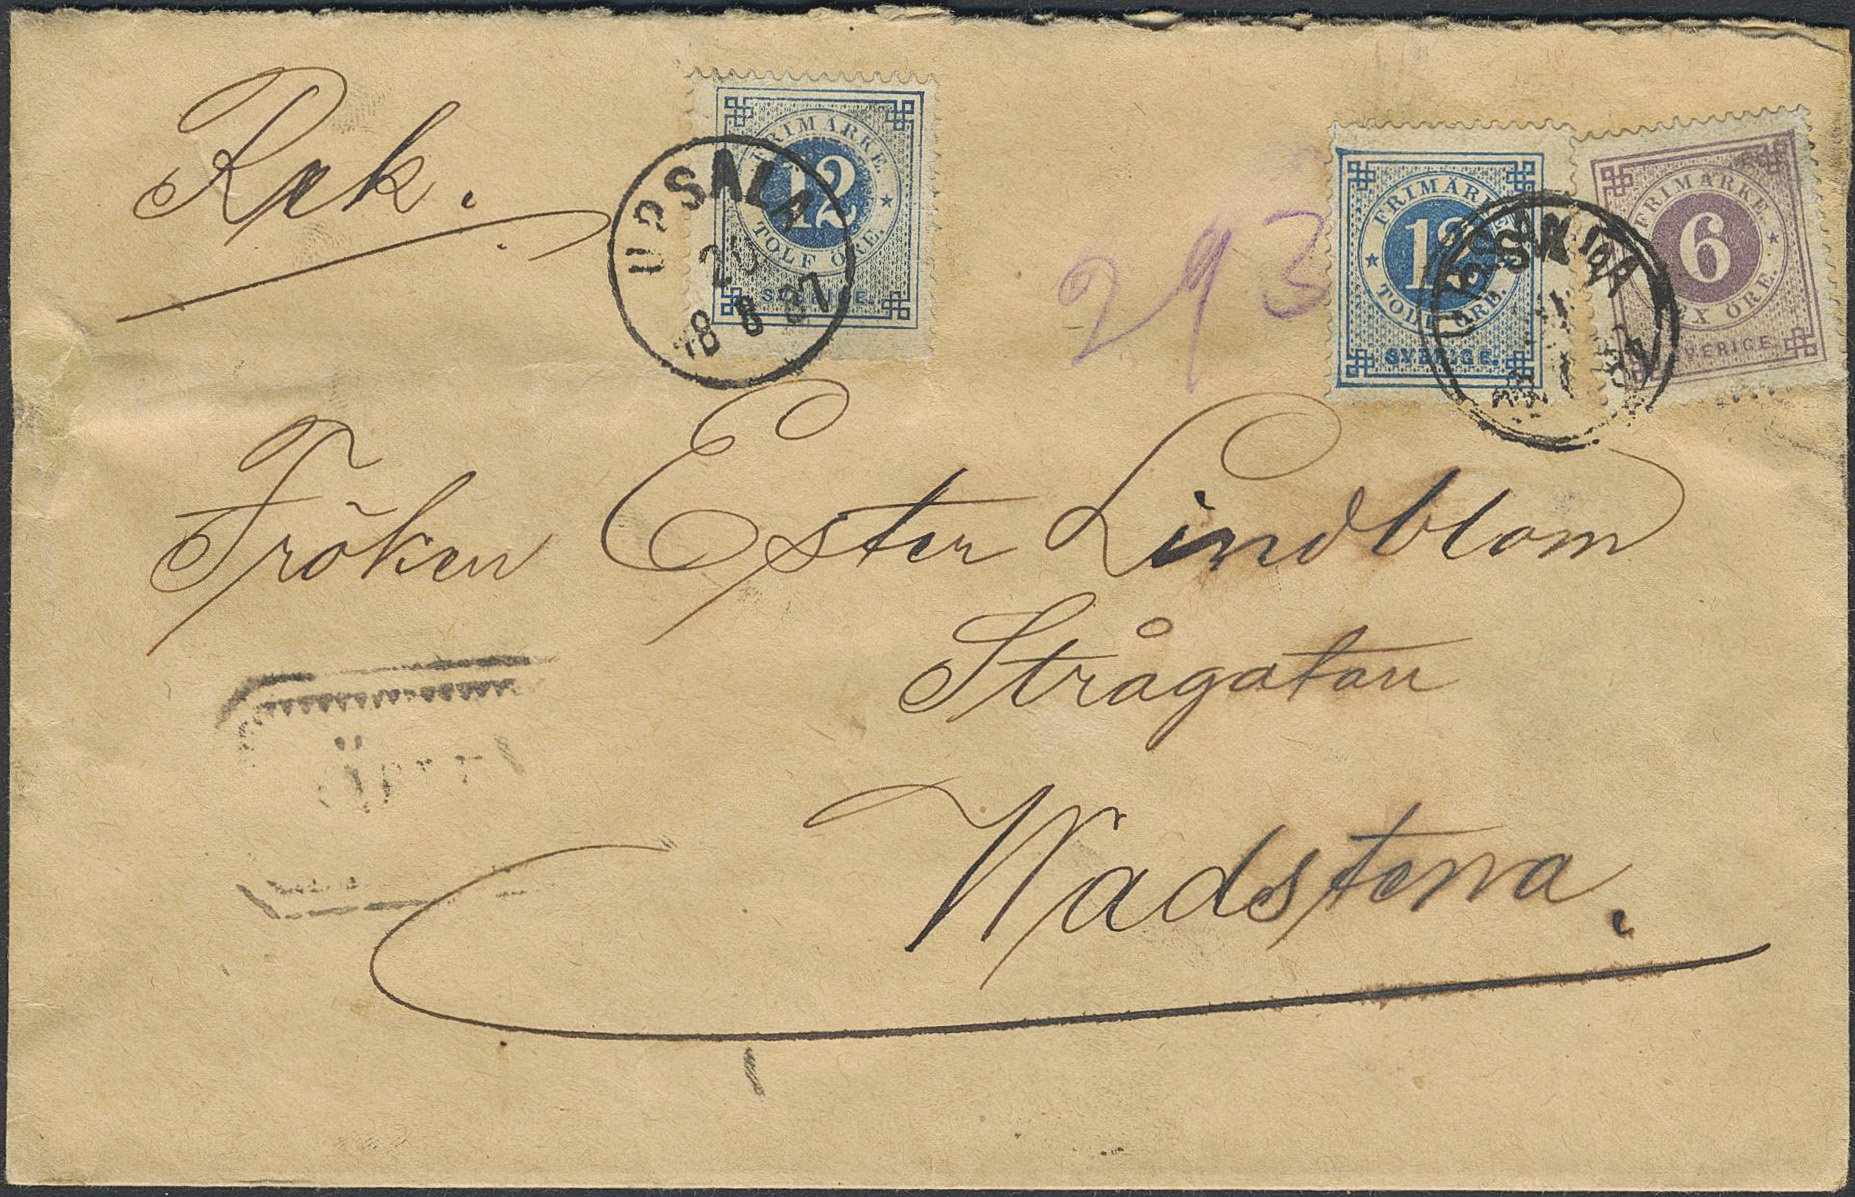 Rek.
FRIMÄRKE
12
TOLF ÖRE.
SVERIGE.
UPSALA
20
18 8 87
293
FRIMÄRKE
12
TOLF ÖRE.
SVERIGE.
FRIMÄRKE.
6
SEX ÖRE.
SVERIGE.
UPSALA
Fröken Ester Lindblom
Strågatan
Wadstena.